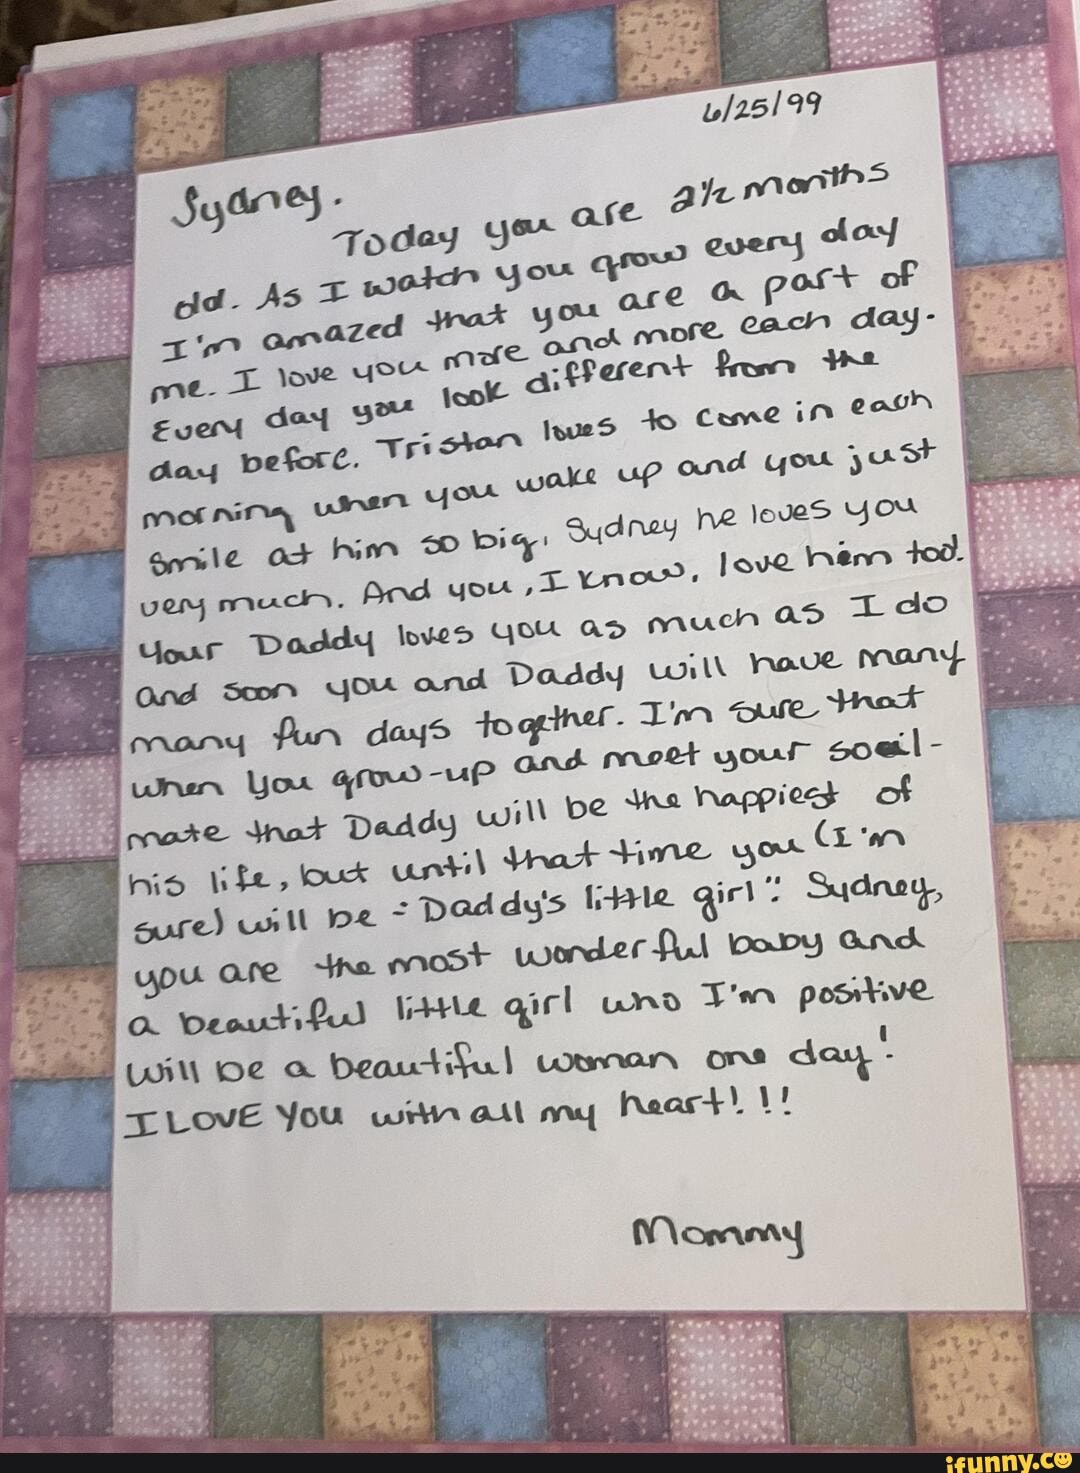 6/25/99
Sydney.
Today you are 2½ months
old. As I watch you grow every day
I'm amazed that you are a part of
me. I love you more and more each day.
Every day you look different from the
day before. Tristan loves to come in each
morning when you wake up and you just
smile at him so big, Sydney he loves you
very much. And you, I know, love him too!
Your Daddy loves you as much as I do
and soon you and Daddy will have many
many fun days together. I'm sure that
when you grow-up and meet your soail-
mate that Daddy will be the happiest of
his life, but until that time you (I'm
sure) will be "Daddy's little girl". Sydney,
you are the most wonderful baby and
a beautiful little girl who I'm positive
will be a beautiful woman one day!
I LOVE YOU with all my heart!!!
Mommy
ifunny.co